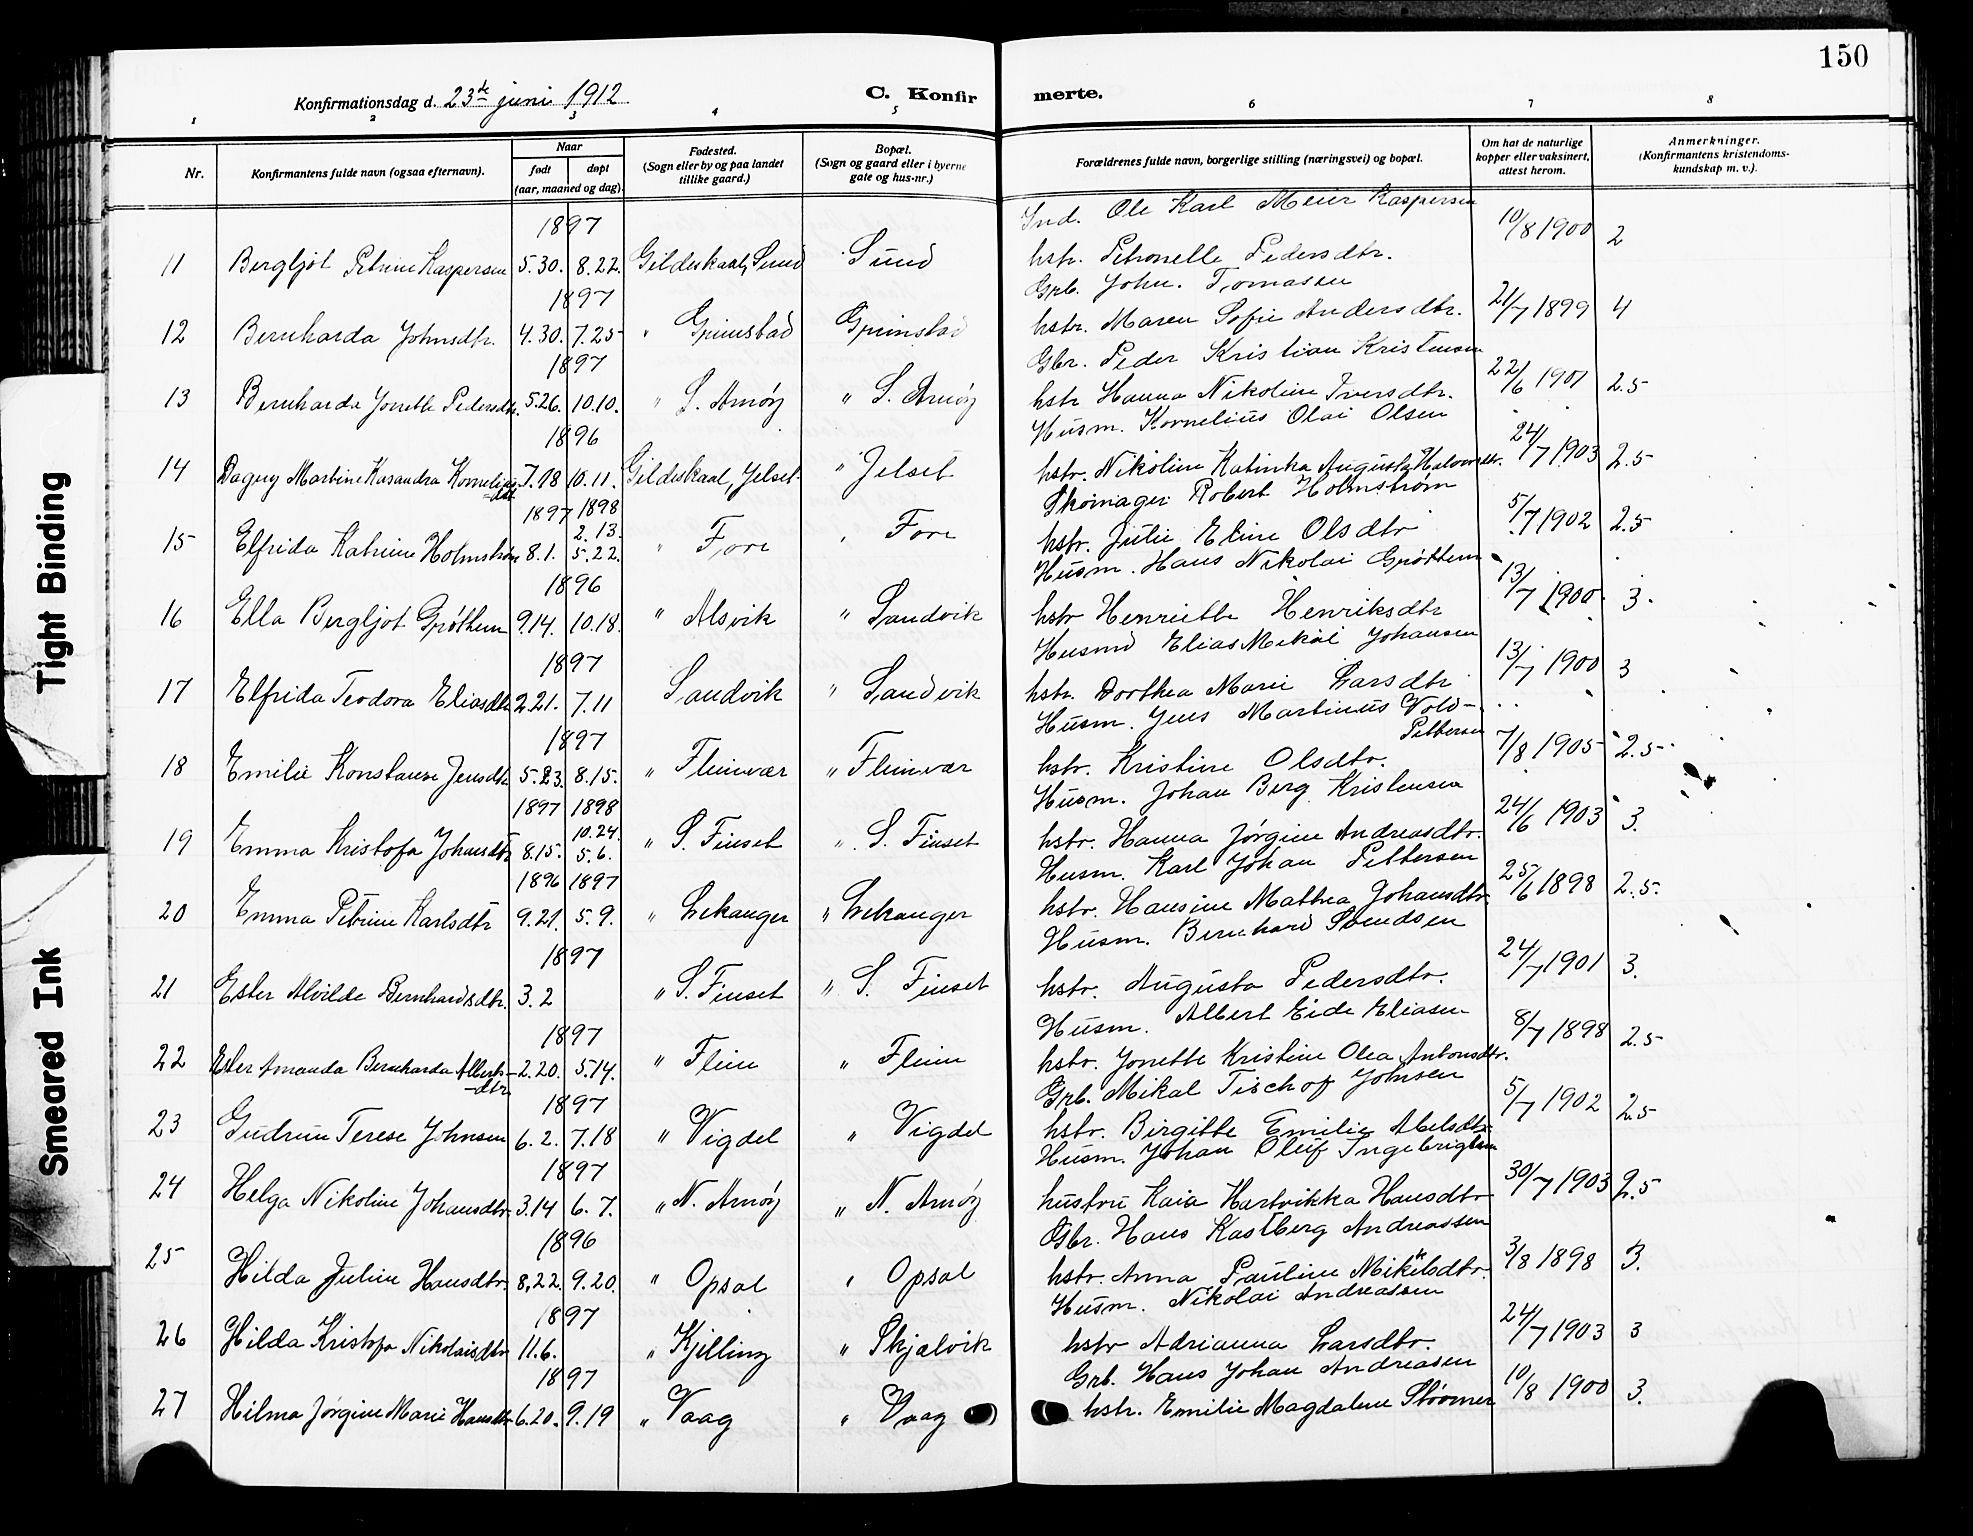 150
Konfirmationsdag d. 23de juni 1912
C. Konfirmerte.
1 2 3 4 5 6 7 8
Nr. Konfirmantens fulde navn (ogsaa efternavn). Naar født døpt (aar, maaned og dag). Fødested. (Sogn eller by og paa landet tillike gaard.) Bopæl. (Sogn og gaard eller i byerne gate og hus-nr.) Forældrenes fulde navn, borgerlige stilling (næringsvei) og bopæl. Om hat de naturlige kopper eller vaksinert, attest herom. Anmerkninger. (Konfirmantens kristendomskundskap m. v.).
1897 Ind. Ole Karl Meier Kaspersen
11 Bergljot Petrine Kaspersen 5.30. 8.22. Gildeskaal, Sund Sund hstr. Petronelle Pedersdtr. 10/8 1900 2
1897 Grb. John. Tomassen
12 Bernharda Johnsdtr. 4.30. 7.25 " Grimstad Grimstad hstr. Maren Sofie Andersdtr. 21/7 1899 4
1897 Gbr. Peder Kristian Kristensen
13 Bernharda Jonette Pedersdtr. 5.26. 10.10. " S. Arnøy " S. Arnøy hstr Hanna Nikoline Iversdtr. 22/6 1901 2.5
1896 Husm. Kornelius Olai Olsen
14 Dagny Martine Kasandra Kornelius-dtr 7.18 10.11. Gildeskaal, Jelset " Jelset hstr. Nikoline Katinka Augusta Halvorsdtr. 24/7 1903 2.5
1897 1898 Skomager Robert Holmstrøm
15 Elfrida Katrine Holmstrøm 8.1. 2.13. 5.22. " Fore " Fore hstr. Julie Eline Olsdtr 5/7 1902 2.5
1896 Husm. Hans Nikolai Grøttem
16 Ella Bergljot Grøttem 9.14. 10.18. " Alsvik " Sandvik hstr Henriette Henriksdtr 13/7 1900. 3.
1897 Husmd Elias Mekal Johansen
17 Elfrida Teodora Eliasdtr 2.21. 7.11 Sandvik " Sandvik hstr. Dorthea Marie Larsdtr 13/7 1900 3
1897 Husm. Jens Martinus Vold-Pettersen
18 Emilie Konstanse Jensdtr 5.23. 8.15. " Fleinvær " Fleinvær hstr. Kristine Olsdtr. 7/8 1905 2.5
1897 1898 Husm. Johan Berg Kristensen
19 Emma Kristofa Johansdtr 8.15. 10.24. 5.6. " S. Finset " S. Finset hstr. Hanna Jørgine Andreasdtr. 24/6 1903 3.
1896 1897 Husm. Karl Johan Pettersen
20 Emma Petrine Karlsdtr 9.21. 5.9. " Lekanger " Lekanger hstr. Hansine Mathea Johansdtr. 25/6 1898 2.5.
1897 Husm. Bernhard Svendsen
21 Ester Alvilde Bernhardsdtr. 3.2 " S. Finset " S. Finset hstr. Augusta Pedersdtr. 24/7 1901 3.
1897 Husm. Albert Eide Eliasen
22 Ester Amanda Bernharda Alberts-dtr 2.20. 5.14. " Flein " Flein hstr. Jonette Kristine Olea Antonsdtr. 8/7 1898 2.5
1897 Grb. Mikal Tischof Johnsen
23 Gudrun Terese Johnsen 6.2. 7.18 " Vigdel " Vigdel hstr. Birgitte Emilie Abelsdtr 5/7 1902 2.5
1897 Husm. Johan Oluf Ingebrigtsen
24 Helga Nikoline Johansdtr. 3.14 6.7. " N. Arnøy " N. Arnøy hustru Kaia Hartvikka Hansdtr 30/7 1903 2.5
1896 Gbr. Hans Kastberg Andreassen
25 Hilda Juline Hansdtr. 8.22. 9.20. " Opsal " Opsal hstr. Anna Pauline Mikalsdtr. 3/8 1898 3.
1897 Husm. Nikolai Andreassen
26 Hilda Kristofa Nikolaisdtr 11.6. " Kjelling " Skjælvik hstr Adrianna Larsdtr. 24/7 1903 3
1897 Grb. Hans Johan Andreasen
27 Hilma Jørgine Marie Hansdtr 6.20. 9.19 " Vaag " Vaag hstr. Emilie Magdalene Strømer 10/8 1900 3.
Tight Binding
Smeared Ink